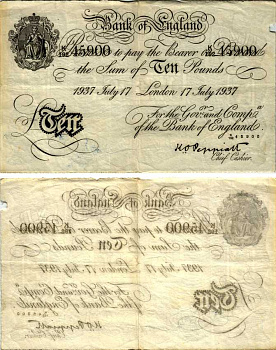 Bank of England
45900 to pay the Bearer on Demand 45900
the Sum of Ten Pounds
1937 July 17 London 17 July 1937
For the Gov.r and Comp.a
of the Bank of England.
45900
£Ten
K O Peppiatt
Chief Cashier.